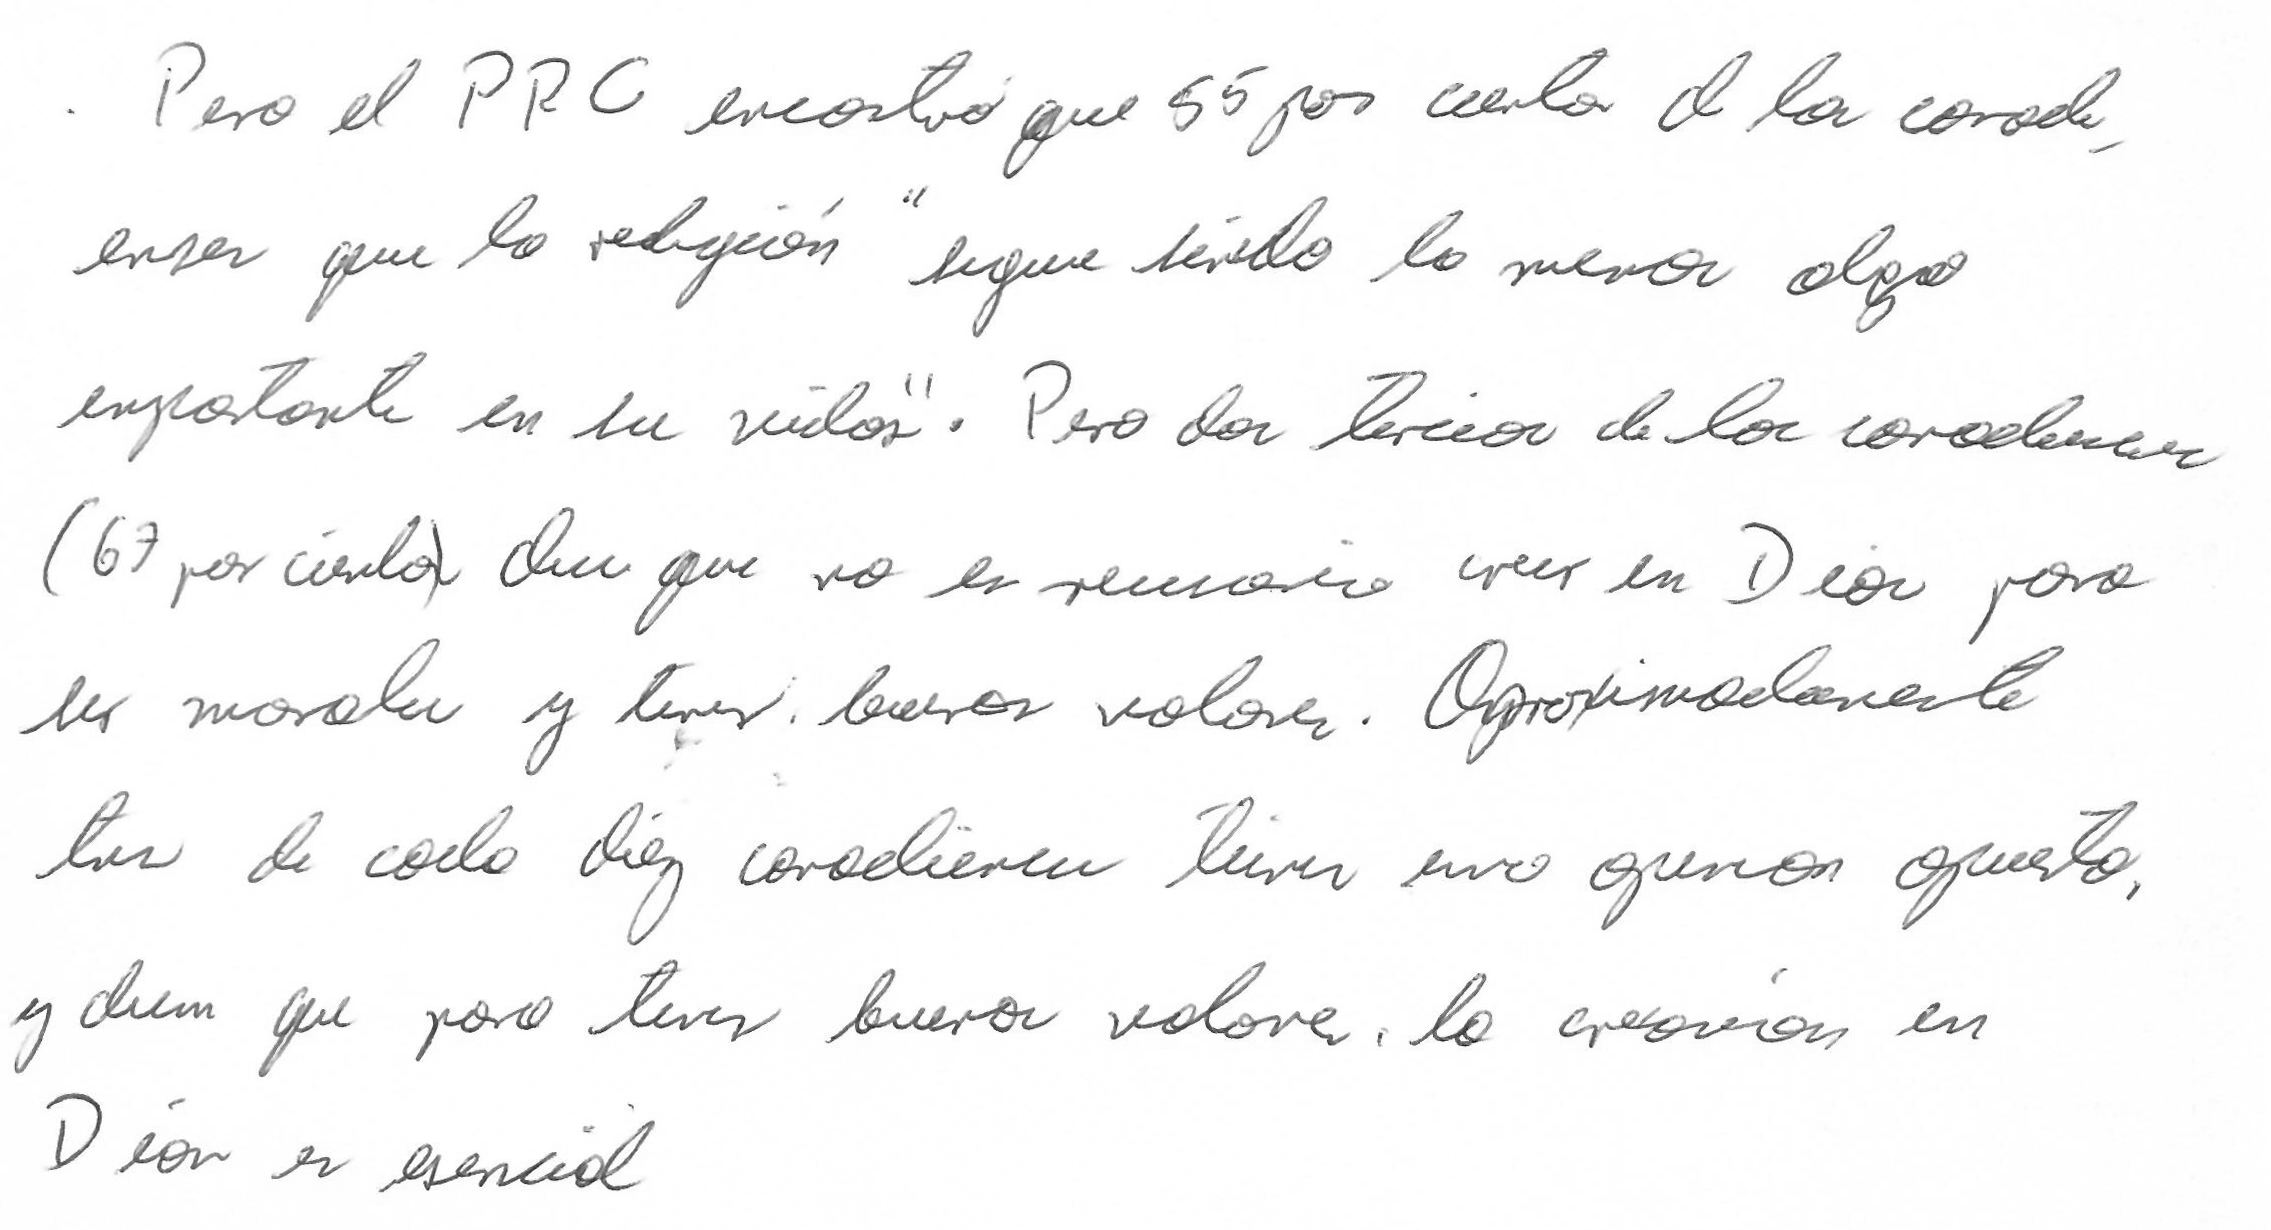 . Pero el PRC encontró que 55 por ciento de los canadi-
enses que la religión "sigue siendo lo menos algo
importante en su vidas". Pero dos tercios de los canadienses
(67 por ciento) dicen que no es necesario creer en Dios para
ser morales y tener buenos valores. Aproximadamente
tres de cada diez canadienses tienen una opinión opuesta,
y dicen que para tener buenos valores, la creencia en
Dios es esencial